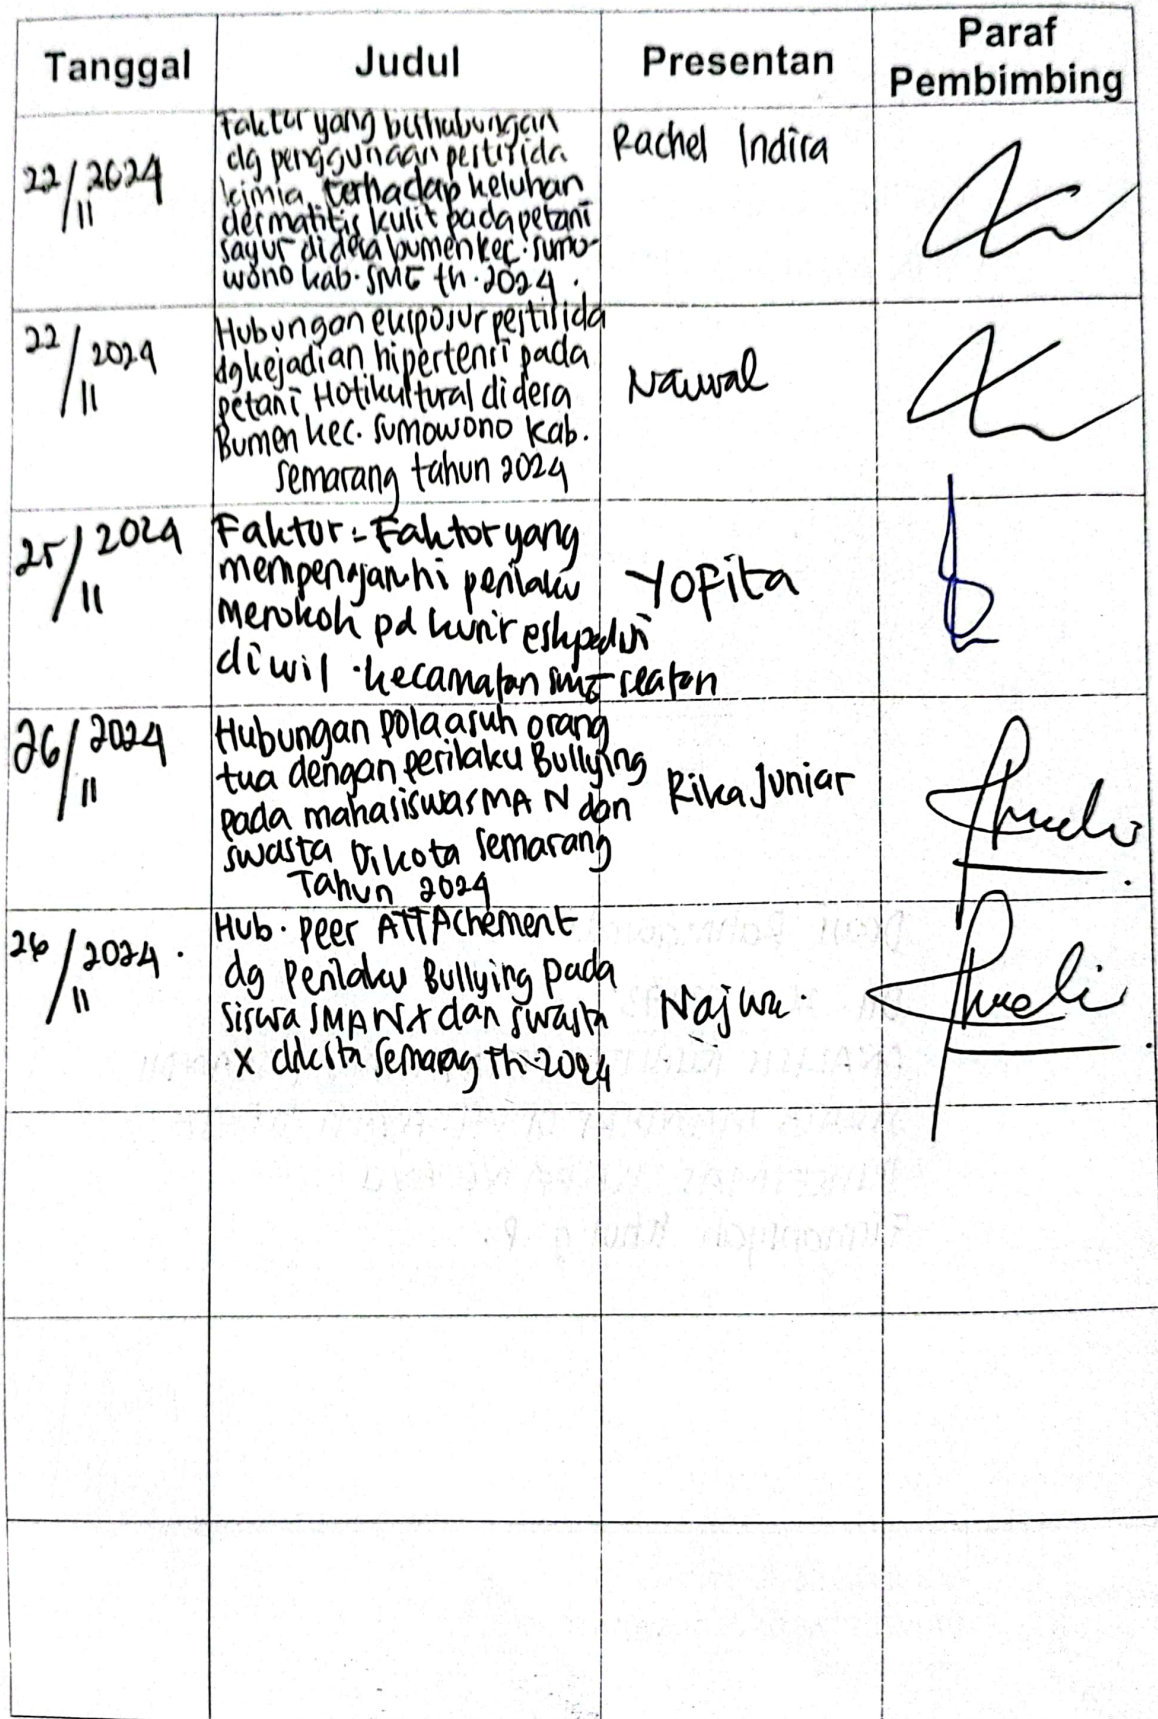 Tanggal
Judul
Presentan
Paraf
Pembimbing
22/11 2024
Faktor yang berhubungan
dg penggunaan pestisida
kimia terhadap keluhan
dermatitis kulit pada petani
sayur di desa bumen kec. sumo-
wono kab. SMG th. 2024.
Rachel Indira
22/11 2024
Hubungan eksposur pestisida
dg kejadian hipertensi pada
petani Hotikultural di desa
Bumen kec. sumowono kab.
semarang tahun 2024
Nawal
25/11 2024
Faktor-Faktor yang
mempengaruhi perilaku
merokok pd kurir ekspedisi
di wil. kecamatan smg selatan
Yofita
26/11 2024
Hubungan pola asuh orang
tua dengan perilaku Bullying
pada mahasiswa SMA N dan
swasta Di kota semarang
Tahun 2024
Rika Juniar
26/11 2024.
Hub. peer ATTAchement
dg Perilaku Bullying pada
siswa SMA N X dan swasta
X dikota semarag Th. 2024
Najwa.